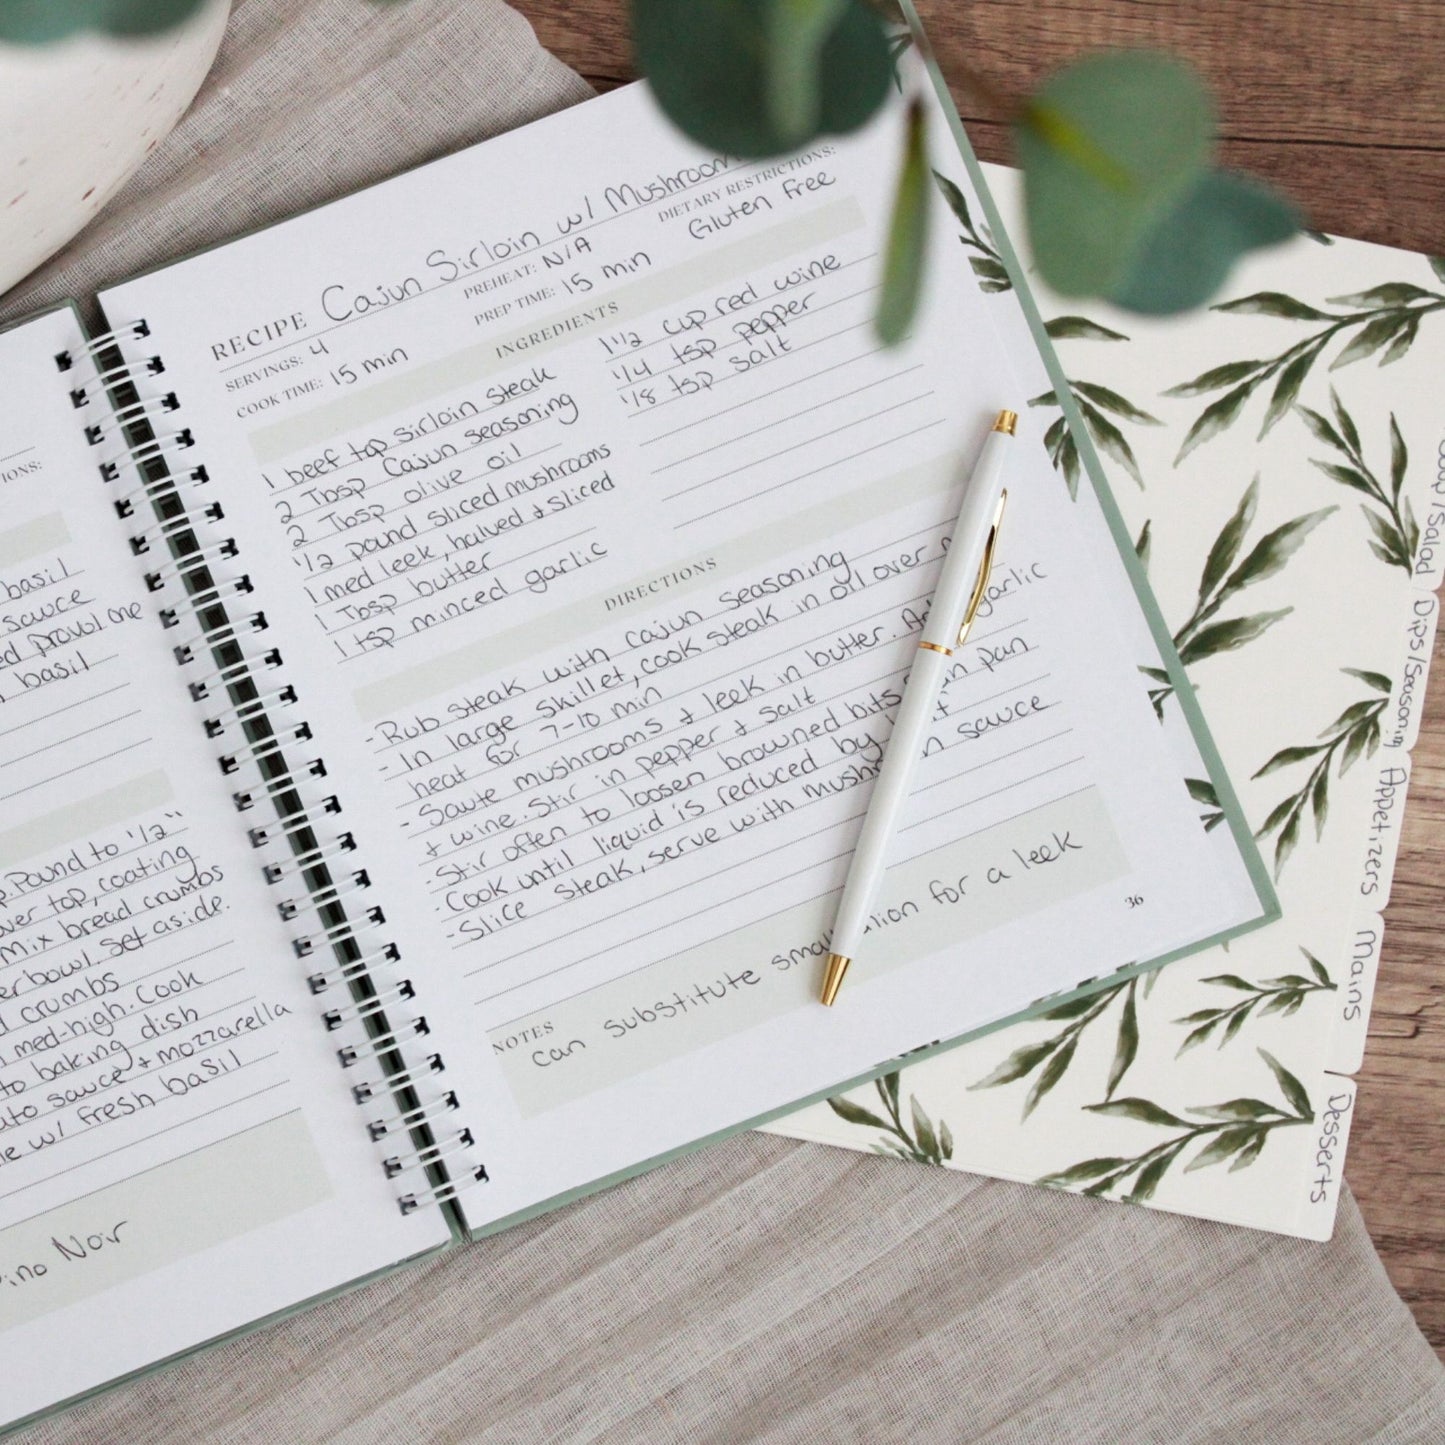 IONS:
basil
sauce
ed provolone
basil
Pound to 1/2"
over top, coating
mix bread crumbs
bowl. Set aside.
crumbs
med-high. Cook
to baking dish
sauce + mozzarella
w/ fresh basil
Noir
RECIPE Cajun Sirloin w/ Mushroom
SERVINGS: 4
PREHEAT: N/A
DIETARY RESTRICTIONS:
COOK TIME: 15 min
PREP TIME: 15 min
Gluten Free
INGREDIENTS
1 beef top sirloin steak
2 Tbsp Cajun seasoning
2 Tbsp olive oil
1/2 pound sliced mushrooms
1 med leek, halved + sliced
1 Tbsp butter
1 tsp minced garlic
1 1/2 cup red wine
1/4 tsp pepper
1/8 tsp salt
DIRECTIONS
- Rub steak with cajun seasoning
- In large skillet, cook steak in oil over
heat for 7-10 min
- Saute mushrooms + leek in butter. Add garlic
+ wine. Stir in pepper + salt
- Stir often to loosen browned bits pan
- Cook until liquid is reduced by
- Slice steak, serve with mushroom sauce
NOTES
can substitute small onion for a leek
36
Soup/Salad
Dips/Seasoning
Appetizers
Mains
Desserts